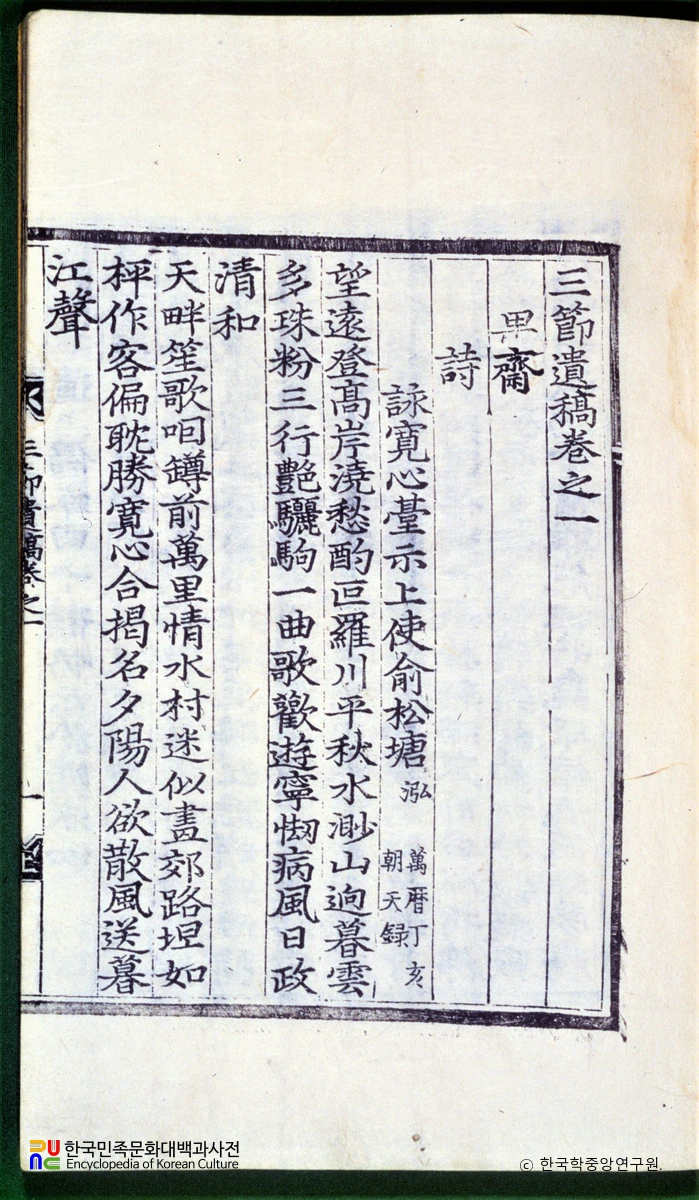 三節遺稿卷之一
果齋
詩
詠寬心臺示上使俞松塘泓 萬曆丁亥朝天錄
望遠登高岸澆愁酌叵羅川平秋水渺山逈暮雲
多珠粉三行艶驪駒一曲歌歡遊寧㤼病風日政
清和
天畔笙歌咽鐏前萬里情水村迷似畫郊路坦如
枰作客偏耽勝寬心合揭名夕陽人欲散風送暮
江聲
三節遺稿卷之一
一
한국민족문화대백과사전
Encyclopedia of Korean Culture
© 한국학중앙연구원.